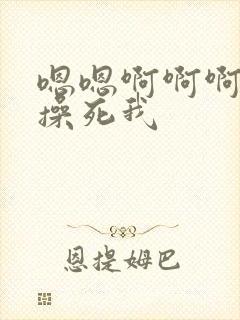 嗯嗯啊啊啊
操死我
恩提姆巴